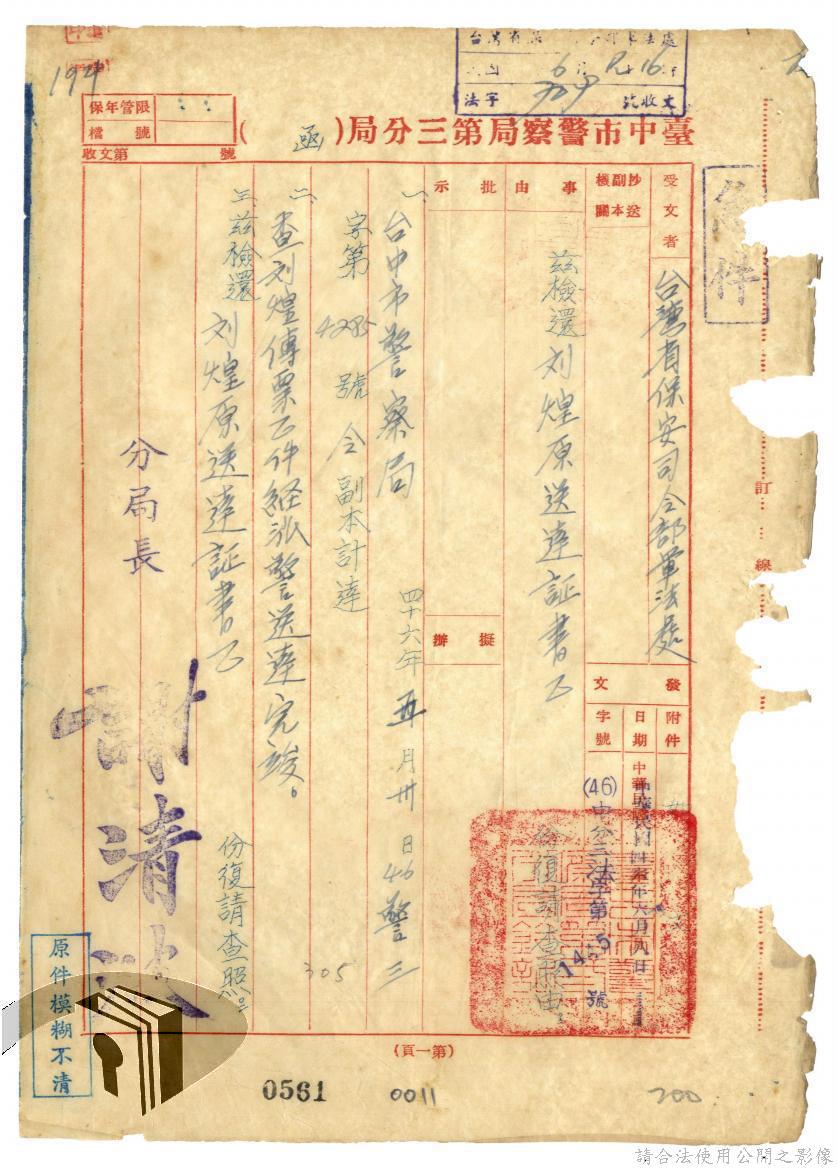 194
台灣省保
6月
16
法字
號收文
保年管限
檔號
收文第 號
臺中市警察局第三分局(函)
急件
受文者
台灣省保安司令部軍法處
抄送副本機關
事由
茲檢還刘煌原送達証書乙
份復請查照由。
批示
擬辦
發文
附件
日期
中華民國四十六年六月八日
字號
(46)中分三法字第1445號
一、台中市警察局四十六年五月卅日46警三
字第4285號令副本計達
二、查刘煌傳票乙件經派警送達完竣。
三、茲檢還刘煌原送達証書乙
份復請查照。
305
分局長
謝清
訂
線
原件模糊不清
(第一頁)
0561
0011
200
請合法使用公開之影像